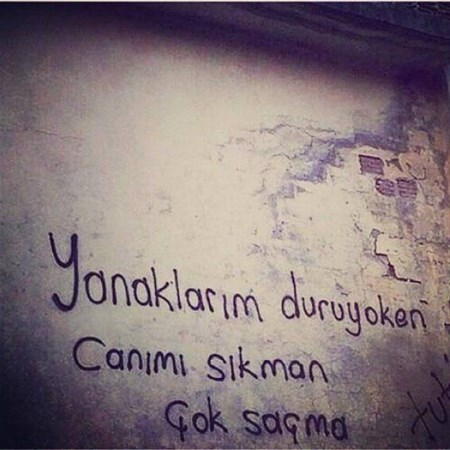 Yanaklarım duruyoken
Canımı sıkman
Çok saçma